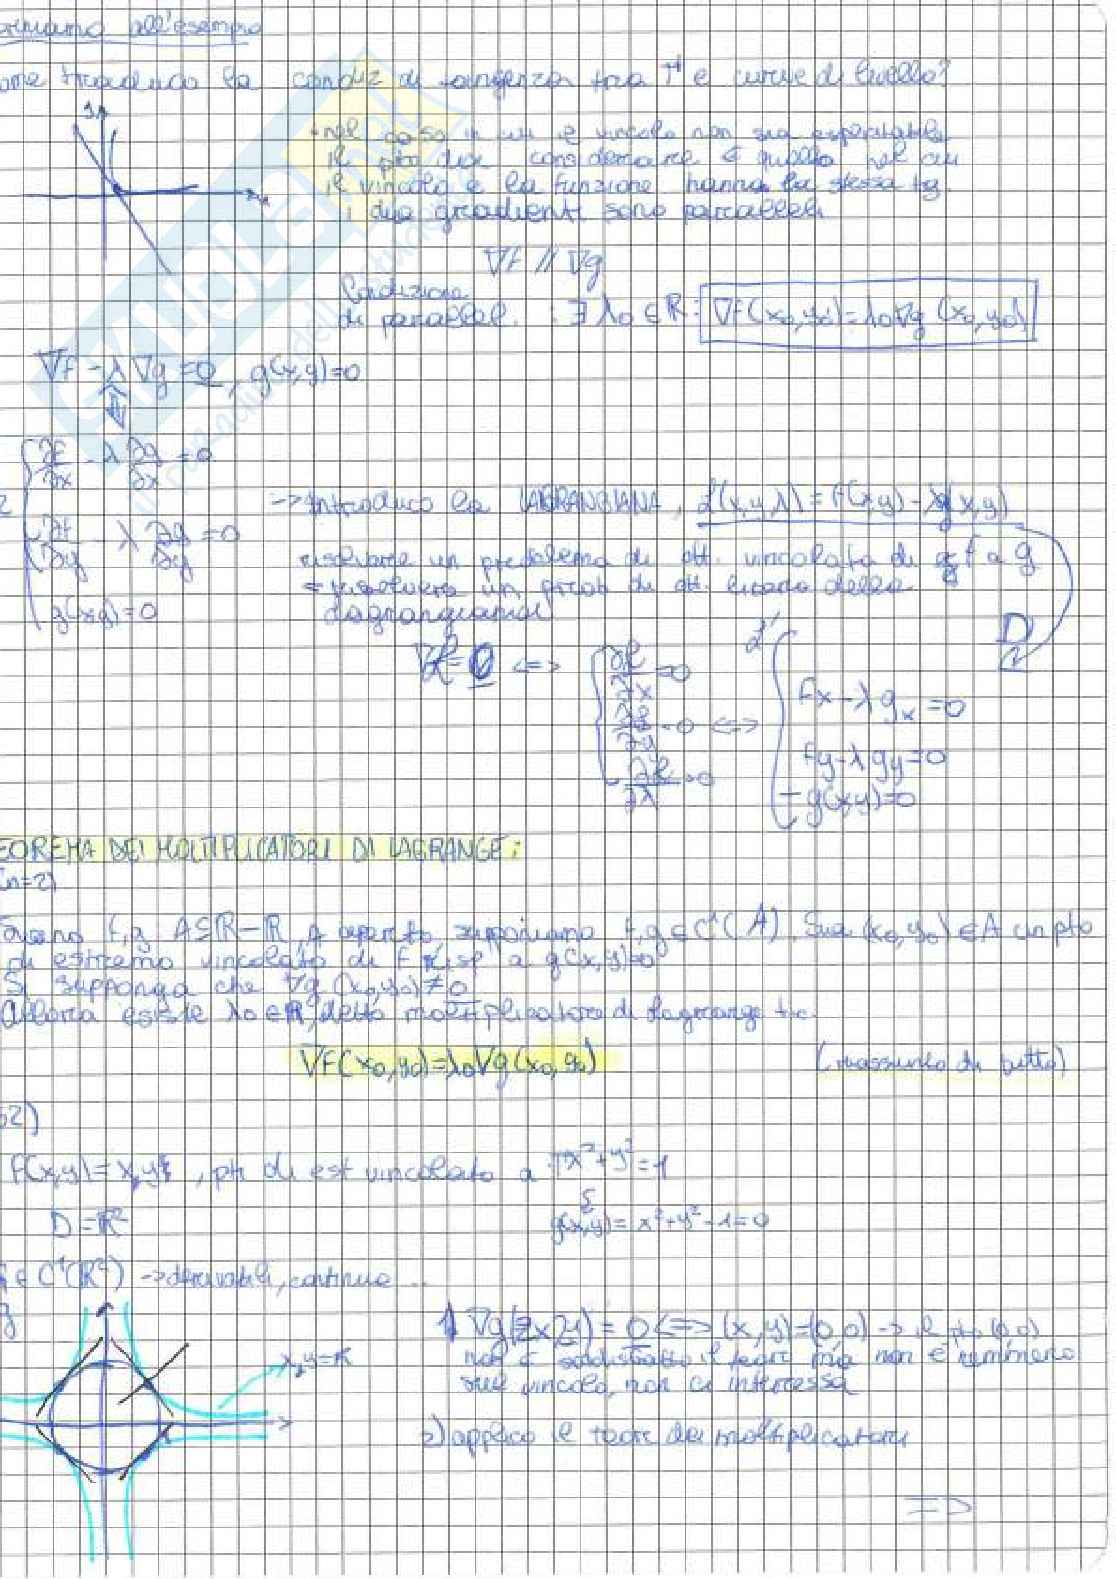 all'esempio
condiz di tangenza tra Γ e curve di livello?
y
x
nel caso in cui il vincolo non sia esplicitabile
il pto da considerare è quello nel cui
il vincolo e la funzione hanno la stessa tg.
i due gradienti sono paralleli
∇f // ∇g
Condizione
di parallel. : ∃ λ₀ ∈ ℝ : ∇f(x₀,y₀) = λ₀∇g (x₀,y₀)
∇f - λ ∇g = 0 , g(x,y)=0
∂f/∂x - λ ∂g/∂x = 0
→ introduco la LAGRANGIANA, ℒ(x,y,λ) = f(x,y) - λg(x,y)
∂f/∂y - λ ∂g/∂y = 0
risolvere un problema di ott. vincolata di f a g
= risolvere un prob di ott. libera della
g(x,y)=0
lagrangiana
∇ℒ = 0 <=> { ∂ℒ/∂x = 0
∂ℒ/∂y = 0 <=>
∂ℒ/∂λ = 0
fx - λ gx = 0
fy - λ gy = 0
- g(x,y) = 0
EOREMA DEI MOLTIPLICATORI DI LAGRANGE:
(n=2)
f,g: A⊆ℝ→ℝ, A aperto, supponiamo f,g ∈ C¹(A). Sia (x₀,y₀) ∈ A un pto
di estremo vincolato di f risp a g(x,y)=0
Si supponga che ∇g (x₀,y₀) ≠ 0
Allora esiste λ₀ ∈ ℝ, detto moltiplicatore di Lagrange t.c.
∇f(x₀,y₀) = λ₀∇g(x₀,y₀)
(riassunto di tutto)
f(x,y) = x,y , pti di est vincolato a x²+y²=1
D = ℝ²
g(x,y) = x²+y²-1=0
∈ C¹(ℝ²) → derivabili, continue ..
x,y=k
1) ∇g(2x,2y) = 0 <=> (x,y)=(0,0) → il pto (0,0)
non è soddisfatto il teor ma non è nemmeno
sul vincolo, non ci interessa
2) applico il teor dei moltiplicatori